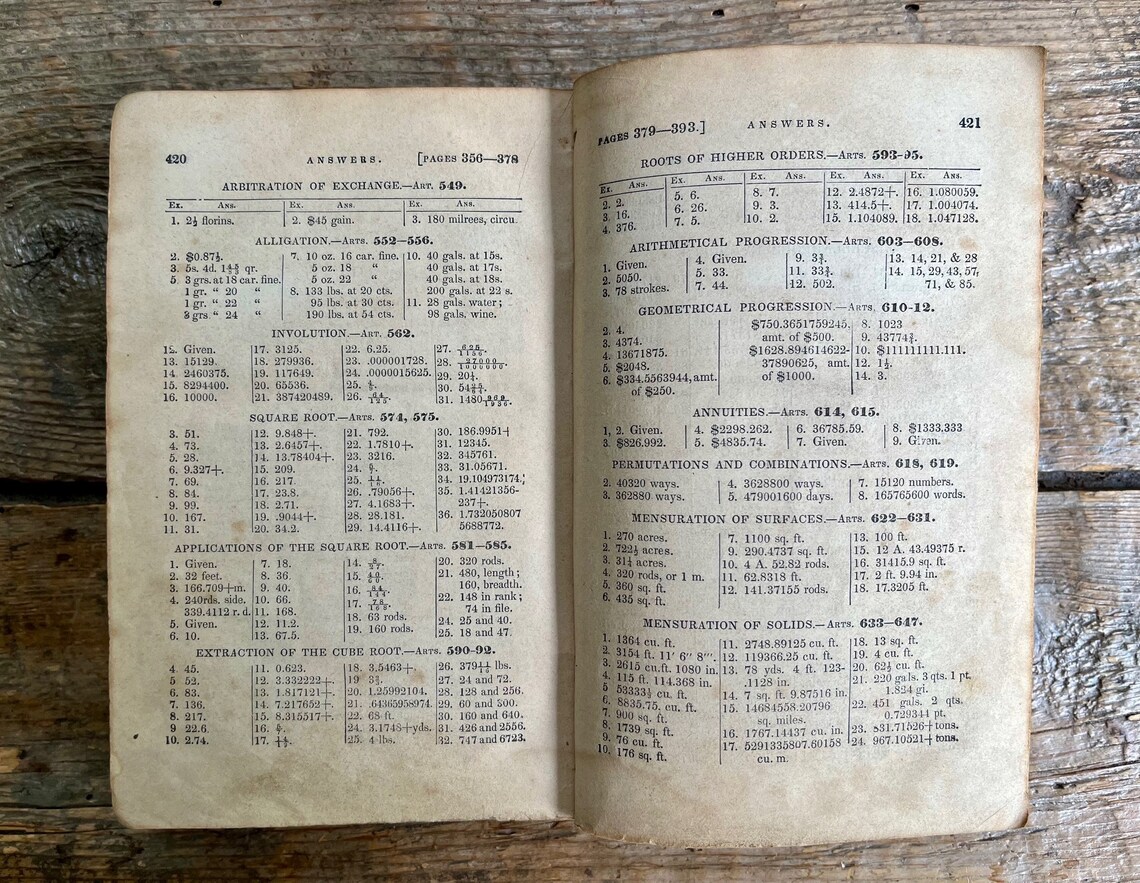 420 ANSWERS. [PAGES 356—378
ARBITRATION OF EXCHANGE.—ART. 549.
Ex. Ans. Ex. Ans. Ex. Ans.
1. 2½ florins. 2. $45 gain. 3. 180 milrees, circu.
ALLIGATION.—ARTS. 552–556.
2. $0.87½. 7. 10 oz. 16 car. fine. 10. 40 gals. at 15s.
3. 5s. 4d. qr. 5 oz. 18 “ 40 gals. at 17s.
5 3 grs. at 18 car. fine. 5 oz. 22 “ 40 gals. at 18s.
1 gr. “ 20 “ 8. 133 lbs. at 20 cts. 200 gals. at 22 s.
1 gr. “ 22 “ 95 lbs. at 30 cts. 11. 28 gals. water;
3 grs “ 24 “ 190 lbs. at 54 cts. 98 gals. wine.
INVOLUTION.—ART. 562.
12. Given. 17. 3125. 22. 6.25. 27. 625/1156.
13. 15129. 18. 279936. 23. .000001728. 28. 27000/1000000.
14. 2460375. 19. 117649. 24. .0000015625. 29. 20¼.
15. 8294400. 20. 65536. 25. 30.
16. 10000. 21. 387420489. 26. 64/125. 31.
SQUARE ROOT.—ARTS. 574, 575.
3. 51. 12. 9.848+. 21. 792. 30. 186.9951+
4. 73. 13. 2.6457+. 22. 1.7810+. 31. 12345.
5. 28. 14. 13.78404+. 23. 3216. 32. 345761.
6. 9.327+. 15. 209. 24. 33. 31.05671.
7. 69. 16. 217. 25. 34. 19.104973174.
8. 84. 17. 23.8. 26. .79056+. 35. 1.41421356-
9. 99. 18. 2.71. 27. 4.1683+. 237+.
10. 167. 19. .9044+. 28. 28.181. 36. 1.732050807
11. 31. 20. 34.2. 29. 14.4116+. 5688772.
APPLICATIONS OF THE SQUARE ROOT.—ARTS. 581–585.
1. Given. 7. 18. 14. 20. 320 rods.
2. 32 feet. 8. 36 15. 21. 480, length;
3. 166.709+m. 9. 40. 16. 160, breadth.
4. 240rds. side. 10. 66. 17. 22. 148 in rank;
339.4112 r. d. 11. 168. 18. 63 rods. 74 in file.
5. Given. 12. 11.2. 19. 160 rods. 24. 25 and 40.
6. 10. 13. 67.5. 25. 18 and 47.
EXTRACTION OF THE CUBE ROOT.—ARTS. 590-92.
4 45. 11. 0.623. 18. 3.5463+. 26. lbs.
5 52. 12. 3.332222+. 19 27. 24 and 72.
6. 83. 13. 1.817121+. 20. 1.25992104. 28. 128 and 256.
7. 136. 14. 7.217652+. 21. .64365958974. 29. 60 and 300.
8. 217. 15. 8.315517+. 22. 68 ft. 30. 160 and 640.
9 22.6. 16. 24. 3.1748+yds. 31. 426 and 2556.
10. 2.74. 17. 25. 4 lbs. 32. 747 and 6723.
PAGES 379—393.] ANSWERS. 421
ROOTS OF HIGHER ORDERS.—ARTS. 593-95.
Ex. Ans. Ex. Ans. Ex. Ans. Ex. Ans. Ex. Ans.
2. 2. 5. 6. 8. 7. 12. 2.4872+. 16. 1.080059.
3. 16. 6. 26. 9. 3. 13. 414.5+. 17. 1.004074.
4. 376. 7. 5. 10. 2. 15. 1.104089. 18. 1.047128.
ARITHMETICAL PROGRESSION.—ARTS. 603–608.
1. Given. 4. Given. 9. 3¾. 13. 14, 21, & 28
2. 5050. 5. 33. 11. 33¾. 14. 15, 29, 43, 57,
3. 78 strokes. 7. 44. 12. 502. 71, & 85.
GEOMETRICAL PROGRESSION.—ARTS. 610-12.
2. 4. $750.3651759245. 8. 1023
3. 4374. amt. of $500. 9. 43774¾.
4. 13671875. $1628.894614622- 10. $111111111.111.
5. $2048. 37890625, amt. 12. 1½.
6. $334.5563944, amt. of $1000. 14. 3.
of $250.
ANNUITIES.—ARTS. 614, 615.
1, 2. Given. 4. $2298.262. 6. 36785.59. 8. $1333.333
3. $826.992. 5. $4835.74. 7. Given. 9. Given.
PERMUTATIONS AND COMBINATIONS.—ARTS. 618, 619.
2. 40320 ways. 4. 3628800 ways. 7. 15120 numbers.
3. 362880 ways. 5. 479001600 days. 8. 165765600 words.
MENSURATION OF SURFACES.—ARTS. 622–631.
1. 270 acres. 7. 1100 sq. ft. 13. 100 ft.
2. 722½ acres. 9. 290.4737 sq. ft. 15. 12 A. 43.49375 r.
3. 31¼ acres. 10. 4 A. 52.82 rods. 16. 31415.9 sq. ft.
4. 320 rods, or 1 m. 11. 62.8318 ft. 17. 2 ft. 9.94 in.
5. 360 sq. ft. 12. 141.37155 rods. 18. 17.3205 ft.
6. 435 sq. ft.
MENSURATION OF SOLIDS.—ARTS. 633–647.
1. 1364 cu. ft. 11. 2748.89125 cu. ft. 18. 13 sq. ft.
2. 3154 ft. 11′ 6″ 8‴. 12. 119366.25 cu. ft. 19. 4 cu. ft.
3. 2615 cu.ft. 1080 in. 13. 78 yds. 4 ft. 123- 20. 62½ cu. ft.
4. 115 ft. 114.368 in. .1128 in. 21. 220 gals. 3 qts. 1 pt.
5 53333⅓ cu. ft. 14. 7 sq. ft. 9.87516 in. 1.824 gi.
6. 8835.75. cu. ft. 15. 14684558.20796 22. 451 gals. 2 qts.
7. 900 sq. ft. sq. miles. 0.729344 pt.
8. 1739 sq. ft. 16. 1767.14437 cu. in. 23. 831.71526+tons.
9. 76 cu. ft. 17. 5291335807.60158 24. 967.10521+tons.
10. 176 sq. ft. cu. m.